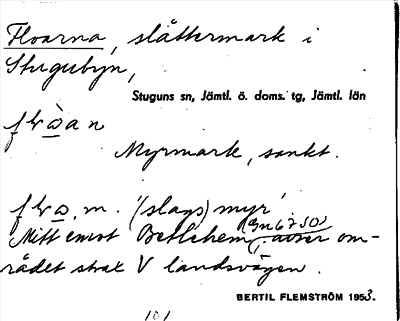 Floarna, slåttermark i
Stugubyn,
Stuguns sn, Jämtl. ö. doms. tg, Jämtl. län
Myrmark, sankt.
m. "(slags) myr"
Mitt emot Betlehem, avser om-
rådet strax V landsvägen.
BERTIL FLEMSTRÖM 1953.
101